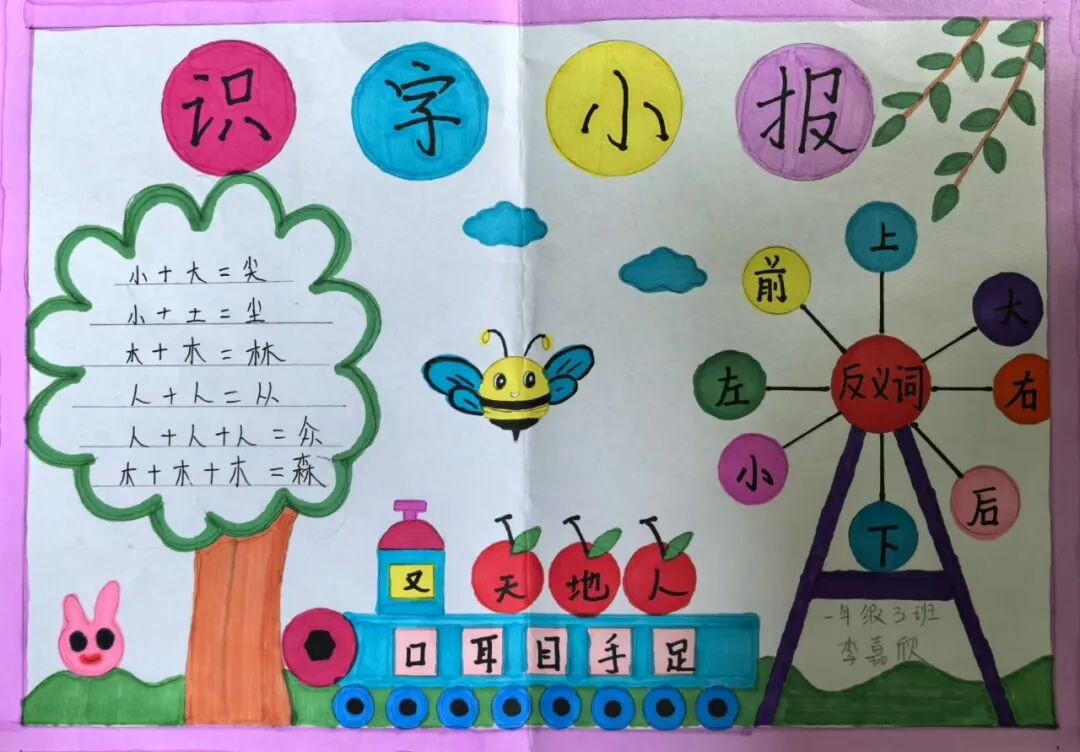 识字小报
小+大=尖
小+土=尘
木+木=林
人+人=从
人+人+人=众
木+木+木=森
上
前
大
左
反义词
右
小
后
下
又
天地人
口耳目手足
一年级3班
李嘉欣